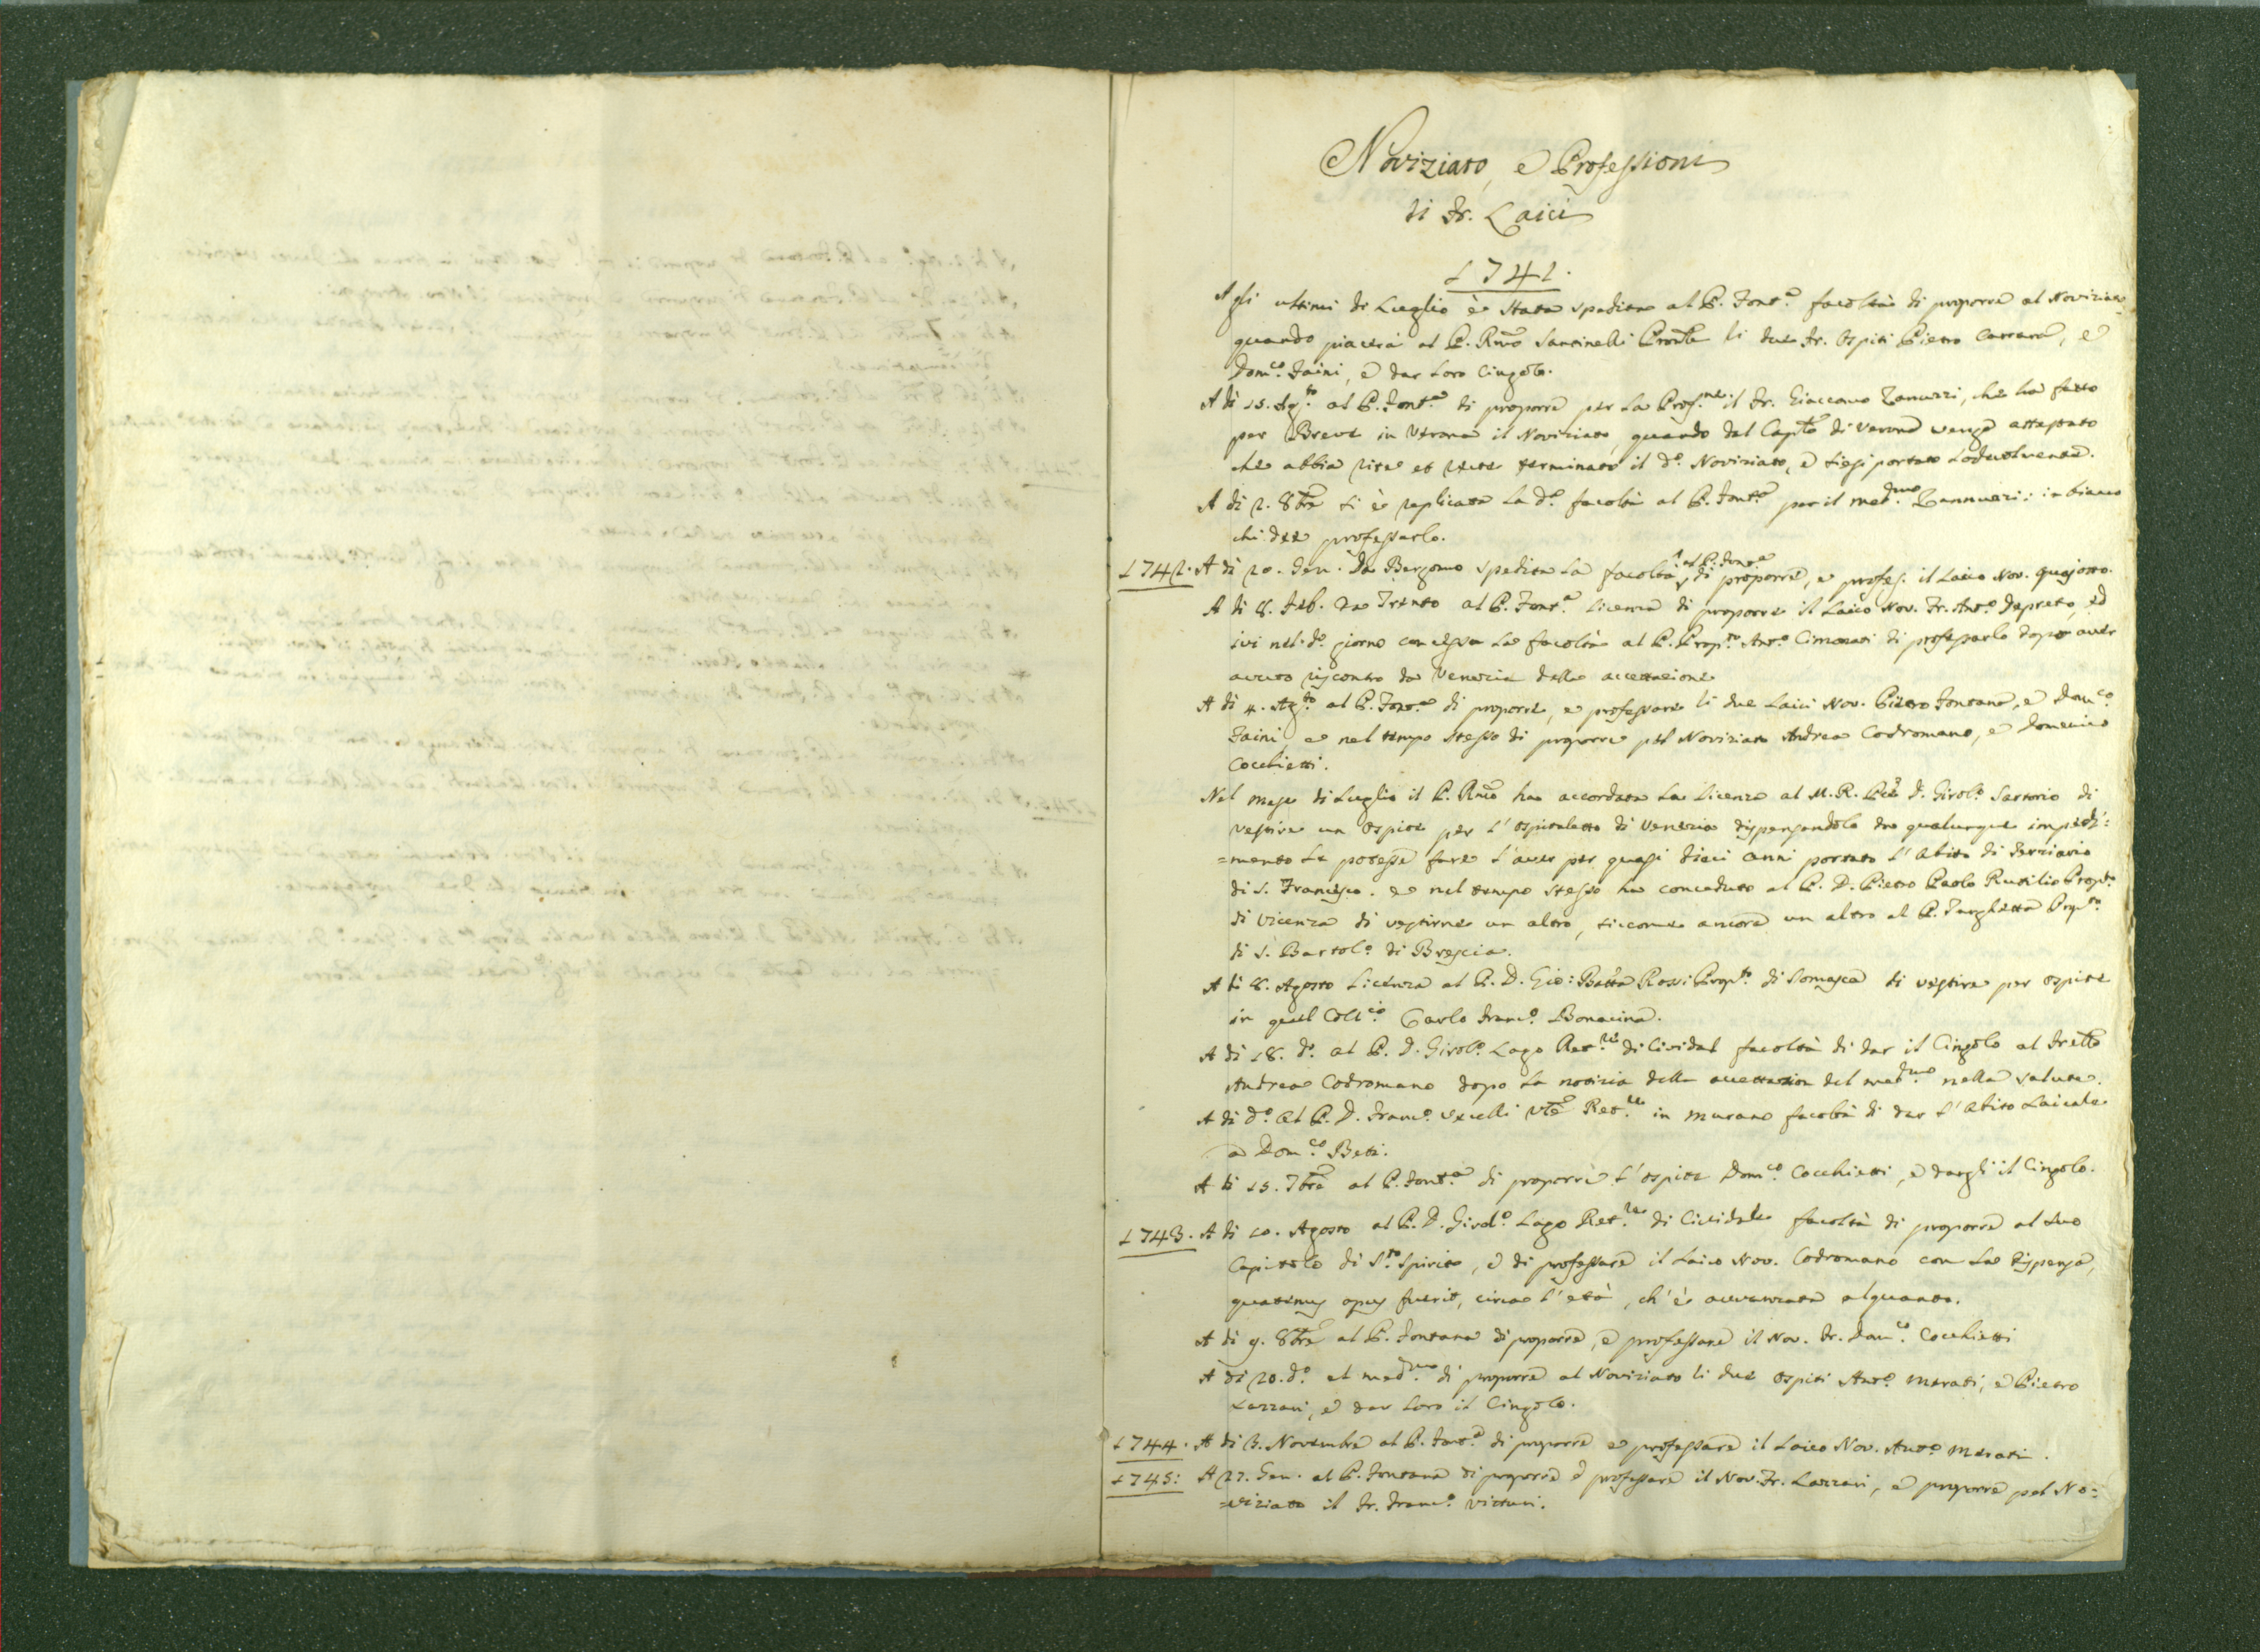 Noviziato, e Professioni
di Fr. Laici
1741.
Agli ultimi di Luglio è stata spedita al P. Font.a facoltà di proporre al Noviziato
quando piacerà al P. Rmo Santinelli Prontle li due Fr. Ospiti Pietro Carrara, e
Dom.co Faini, e dar loro Cingolo.
A di 15. Ag.to al P. Font.a di proporre per la Prof.ne il Fr. Giaccomo Zanuzzi, che ha fatto
per Breve in Verona il Noviziato, quando dal Caplo di Verona venga attestato
che abbia rite et recte terminato il d.o Noviziato, e siesi portato lodevolmente.
A di 2. 8bre si è replicata la d.a facoltà al P. Font.a per il med.mo Zannuzzi: in bianco
chi dee professarlo.
1742. A di 20. Gen. da Bergomo spedita la facoltà al P. Font.a di proporre, e profes. il Laico Nov. Quajotto.
A di 8. Feb. da Trento al P. Font.a licenza di proporre il Laico Nov. Fr. Ant.o Depreto, ed
ivi nel d.o giorno concessa la facoltà al P. Prop.to Ant.o Cimarati di professarlo dopo aver
avuto riscontro da Venezia della accettazione
A di 4. Ag.to al P. Font.a di proporre, e professare li due Laici Nov. Pietro Fontana, e Dom.co
Faini e nel tempo stesso di proporre pel Noviziato Andrea Codromano, e Domenico
Cocchietti.
Nel mese di Luglio il P. Rmo ha accordata la licenza al M. R. Pre D. Girol.o Sartorio di
vestire un Ospite per l'Ospitaletto di Venezia dispensandolo da qualunque impedi:
=mento le potesse fare l'aver per quasi dieci anni portato l'Abito di Terziario
di S. Francesco. e nel tempo stesso ha conceduto al P. D. Pietro Paolo Rutilio Prop.to
di Vicenza di vestirne un altro, siccome ancora un altro al P. Zarghetta Prop.to
di S. Bartol.o di Brescia.
A di 8. Agosto licenza al P. D. Gio: Batta Rossi Prop.to di Somasca di vestire per Ospite
in quel Coll.io Carlo Franc.o Bonacina.
A di 18. d.o al P. D. Girol.o Lago Ret.re di Cividal facoltà di dar il Cingolo al Frello
Andrea Codromano dopo la notizia della accettazion del med.mo nella Salute.
A di d.o al P. D. Franc.o Vecelli Vce Ret.re in Murano facoltà di dar l'Abito Laicale
a Dom.co Betti.
A di 15. 7bre al P. Font.a di proporre l'Ospite Dom.co Cocchietti, e dargli il Cingolo.
1743. A di 10. Agosto al P. D. Girol.o Lago Ret.re di Cividale facoltà di proporre al suo
Capitolo di S.to Spirito, e di professare il Laico Nov. Codromano con la dispensa,
quatenus opus fuerit, circa l'età, ch'è avvanzata alquanto.
A di 9. 8bre al P. Fontana di proporre, e professare il Nov. Fr. Dom.co Cocchietti
A di 20. d.o al med.mo di proporre al Noviziato li due Ospiti Ant.o Merati, e Pietro
Lazzari, e dar loro il Cingolo.
1744. A di 3. Novembre al P. Font.a di proporre e professare il Laico Nov. Ant.o Merati.
1745: A 27. Gen. al P. Fontana di proporre e professare il Nov. Fr. Lazzari, e proporre pel No:
=viziato il Fr. Franc.o Vitturi.